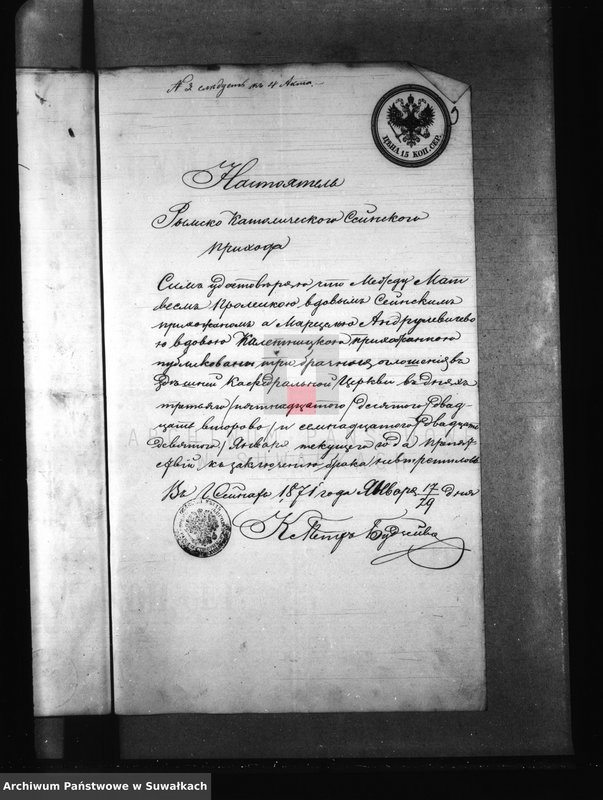 N 3. следуетъ къ 4 Акта.
ЦѢНА 15 КОП. СЕР.
Настоятель
Рымско Католического Сейнского
прихода
Симъ удостоверяю что Между Мат
веемъ вдовымъ Сейнскимъ
прихожаномъ а Марцелею Андрулевичево
ю вдовою Калетницкою прихожанкою
публикованы три брачныя оглошения въ
здешней Кафедральной Церкви въ дняхъ
третьяго /пятнадцатого/ десятого /двад-
цать второво/ и семнадцатого /двадцать
девятого/ Января текущего года препят-
ствий къ заключению брака невстретилось
Въ Г Сейнахъ 1871 года Января 17/29 дня
К Петръ
Archiwum Państwowe w Suwałkach